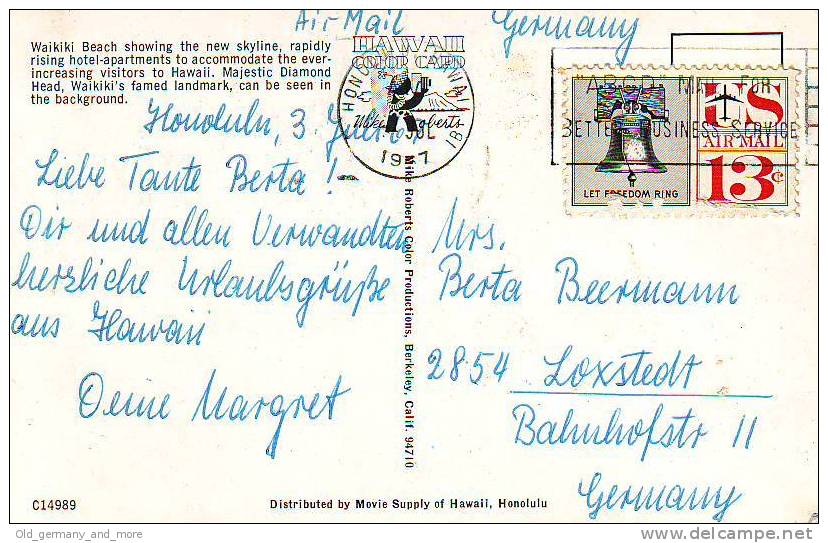 Air Mail
Germany
Waikiki Beach showing the new skyline, rapidly
rising hotel-apartments to accommodate the ever-
increasing visitors to Hawaii. Majestic Diamond
Head, Waikiki's famed landmark, can be seen in
the background.
HAWAII
COLOR CARD
Mike Roberts
HONOLULU HAWAII
JUL
"ABCD" MAIL FOR
BETTER BUSINESS SERVICE
LET FREEDOM RING
US
AIR MAIL
13c
Honolulu, 3. Juli
Liebe Tante Berta!
Dir und allen Verwandten
herzliche Urlaubsgrüße
aus Hawaii
Deine Margret
Mike Roberts Color Productions, Berkeley, Calif. 94710
Mrs.
Berta Beermann
2854 Loxstedt
Bahnhofstr 11
Germany
C14989
Distributed by Movie Supply of Hawaii, Honolulu
Old_germany_and_more
delcampe.net